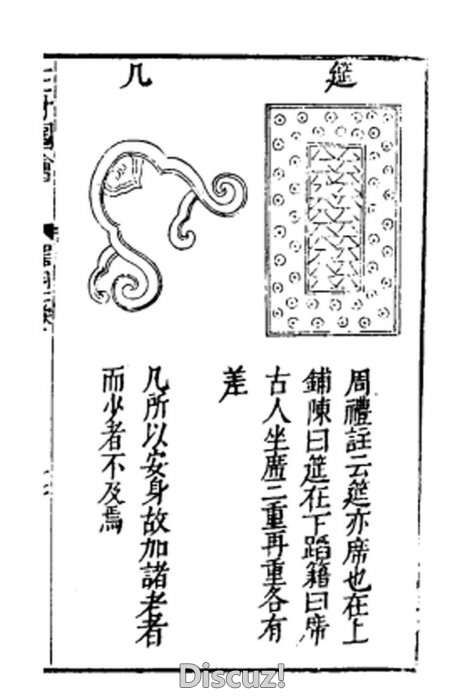 筵
周禮註云筵亦席也在上
鋪陳曰筵在下蹈籍曰席
古人坐席三重再重各有
差
几
几所以安身故加諸老者
而少者不及焉
三才圖會
Discuz!